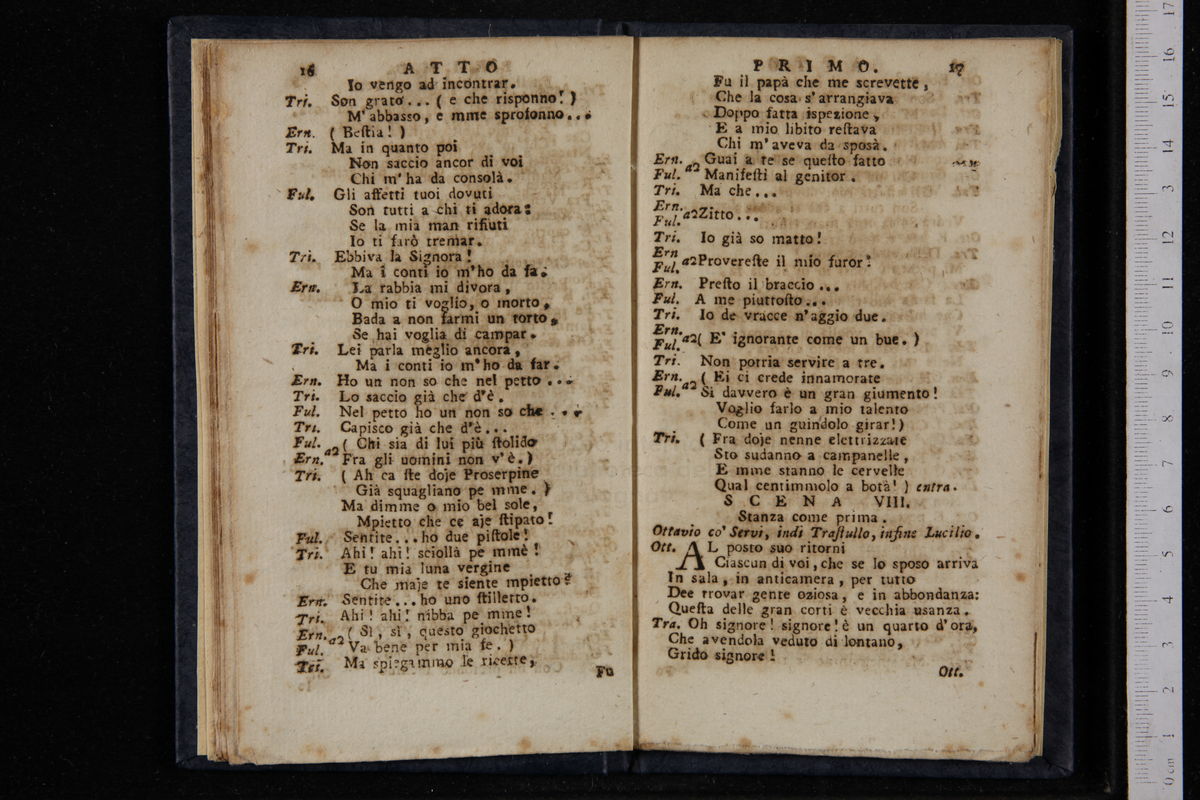 16 ATTO
Io vengo ad incontrar.
Tri. Son grato... ( e che risponno! )
M'abbasso, e mme sprofonno...
Ern. ( Beſtia! )
Tri. Ma in quanto poi
Non saccio ancor di voi
Chi m'ha da consolà.
Ful. Gli affetti tuoi dovuti
Son tutti a chi ti adora:
Se la mia man rifiuti
Io ti farò tremar.
Tri. Ebbiva la Signora!
Ma i conti io m'ho da fa.
Ern. La rabbia mi divora,
O mio ti voglio, o morto,
Bada a non farmi un torto,
Se hai voglia di campar.
Tri. Lei parla meglio ancora,
Ma i conti io m'ho da far.
Ern. Ho un non so che nel petto...
Tri. Lo saccio già che d'è.
Ful. Nel petto ho un non so che...
Tri. Capisco già che d'è...
Ful. ( Chi sia di lui più ſtolido
Ern. a2 Fra gli uomini non v'è. )
Tri. ( Ah ca ſte doje Proserpine
Già squagliano pe mme. )
Ma dimme o mio bel sole,
Mpietto che ce aje ſtipato!
Ful. Sentite... ho due piſtole!
Tri. Ahi! ahi! sciollà pe mmè!
E tu mia luna vergine
Che maje te siente mpietto?
Ern. Sentite... ho uno ſtilletto.
Tri. Ahi! ahi! nibba pe mme!
Ern. ( Sì, sì, questo giochetto
Ful. a2 Va bene per mia fe. )
Tri. Ma spiegammo le ricette,
Fu
PRIMO. 17
Fu il papà che me screvette,
Che la cosa s'arrangiava
Doppo fatta ispezione,
E a mio libito reſtava
Chi m'aveva da sposà.
Ern. Guai a te se queſto fatto
Ful. a2 Manifeſti al genitor.
Tri. Ma che...
Ern.
Ful. a2 Zitto...
Tri. Io già so matto!
Ern
Ful. a2 Provereſte il mio furor!
Ern. Preſto il braccio...
Ful. A me piuttoſto...
Tri. Io de vracce n'aggio due.
Ern.
Ful. a2 ( E' ignorante come un bue. )
Tri. Non potria servire a tre.
Ern. ( Ei ci crede innamorate
Ful. a2 Sì davvero è un gran giumento!
Voglio farlo a mio talento
Come un guindolo girar!)
Tri. ( Fra doje nenne elettrizzate
Sto sudanno a campanelle,
E mme stanno le cervelle
Qual centimmolo a botà! ) entra.
SCENA VIII.
Stanza come prima.
Ottavio co' Servi, indi Traſtullo, infine Lucilio.
Ott. AL posto suo ritorni
Ciascun di voi, che se lo sposo arriva
In sala, in anticamera, per tutto
Dee trovar gente oziosa, e in abbondanza:
Queſta delle gran corti è vecchia usanza.
Tra. Oh signore! signore! è un quarto d'ora,
Che avendola veduto di lontano,
Grido signore!
Ott.
0 cm 1 2 3 4 5 6 7 8 9 10 11 12 13 14 15 16 17